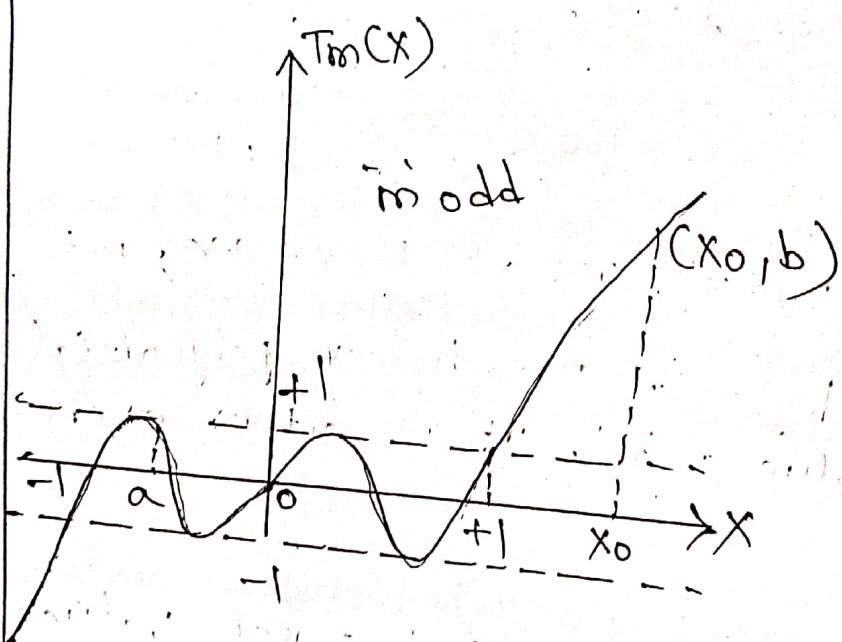 Tm(X)
m odd
(X0, b)
+1
-1
a
0
+1
X0
X
-1